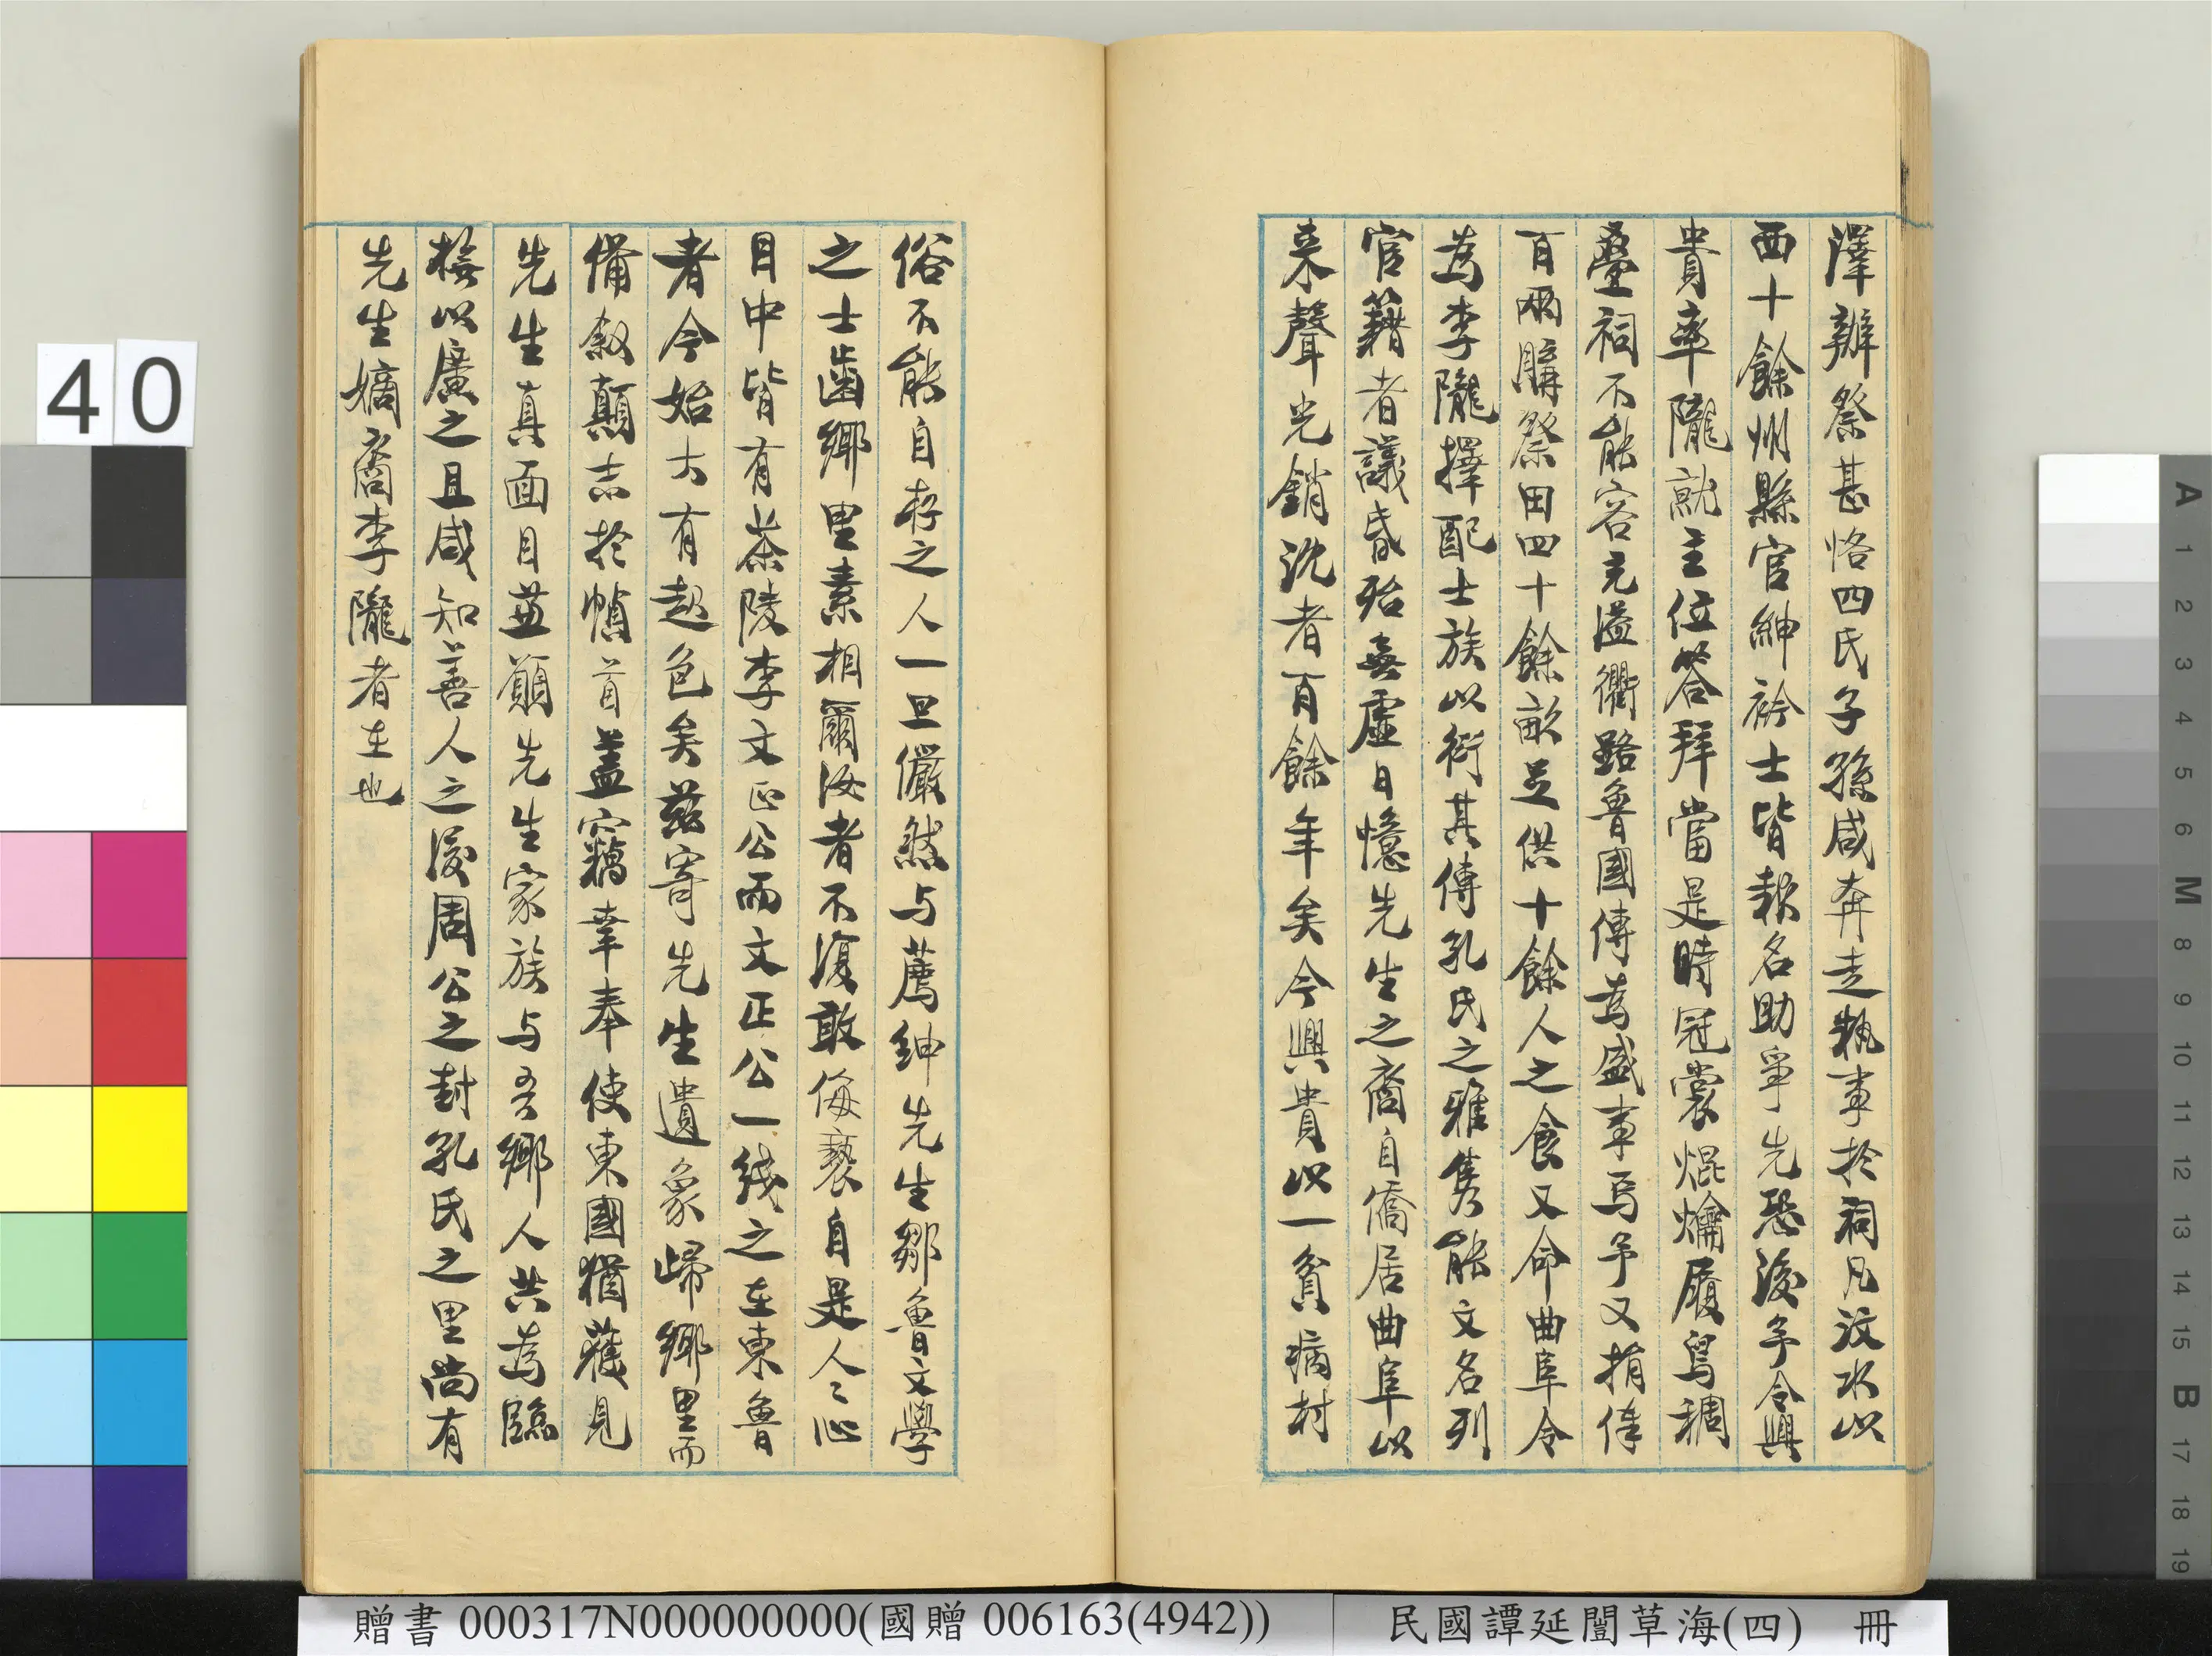 澤辦祭甚恪四氏子孫咸奔走執事於祠凡汶水以
西十餘州縣官紳衿士皆報名助爭先恐後予令興
貴率隴就主位答拜當是時冠裳焜爚履舄稠
疊祠不能容充溢衢路魯國傳為盛事焉予又捐俸
百兩購祭田四十餘畝足供十餘人之食又命曲阜令
為李隴擇配士族以衍其傳孔氏之雅雋能文名列
官籍者議昏殆無虛日憶先生之裔自僑居曲阜以
來聲光銷沈者百餘年矣今興貴以一貧病村
俗不能自存之人一旦儼然与薦紳先生鄒魯文學
之士齒鄉里素相爾汝者不復敢侮褻自是人〻心
目中皆有茶陵李文正公而文正公一綫之在東魯
者今始大有起色矣茲寄先生遺象歸鄉里而
備敘顛末於幀首蓋竊幸奉使東國猶獲見
先生真面目並願先生家族与吾鄉人共為臨
橅以廣之且咸知善人之後周公之封孔氏之里尚有
先生嫡裔李隴者在也
40
贈書 000317N000000000(國贈 006163(4942))
民國譚延闓草海(四) 冊
A 1 2 3 4 5 6 M 8 9 10 11 12 13 14 15 B 17 18 19